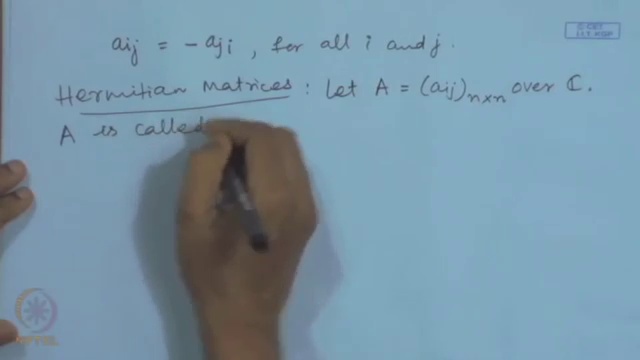 aij = - aji, for all i and j.
Hermitian Matrices : Let A = (aij)n×n over ℂ.
A is called
NPTEL